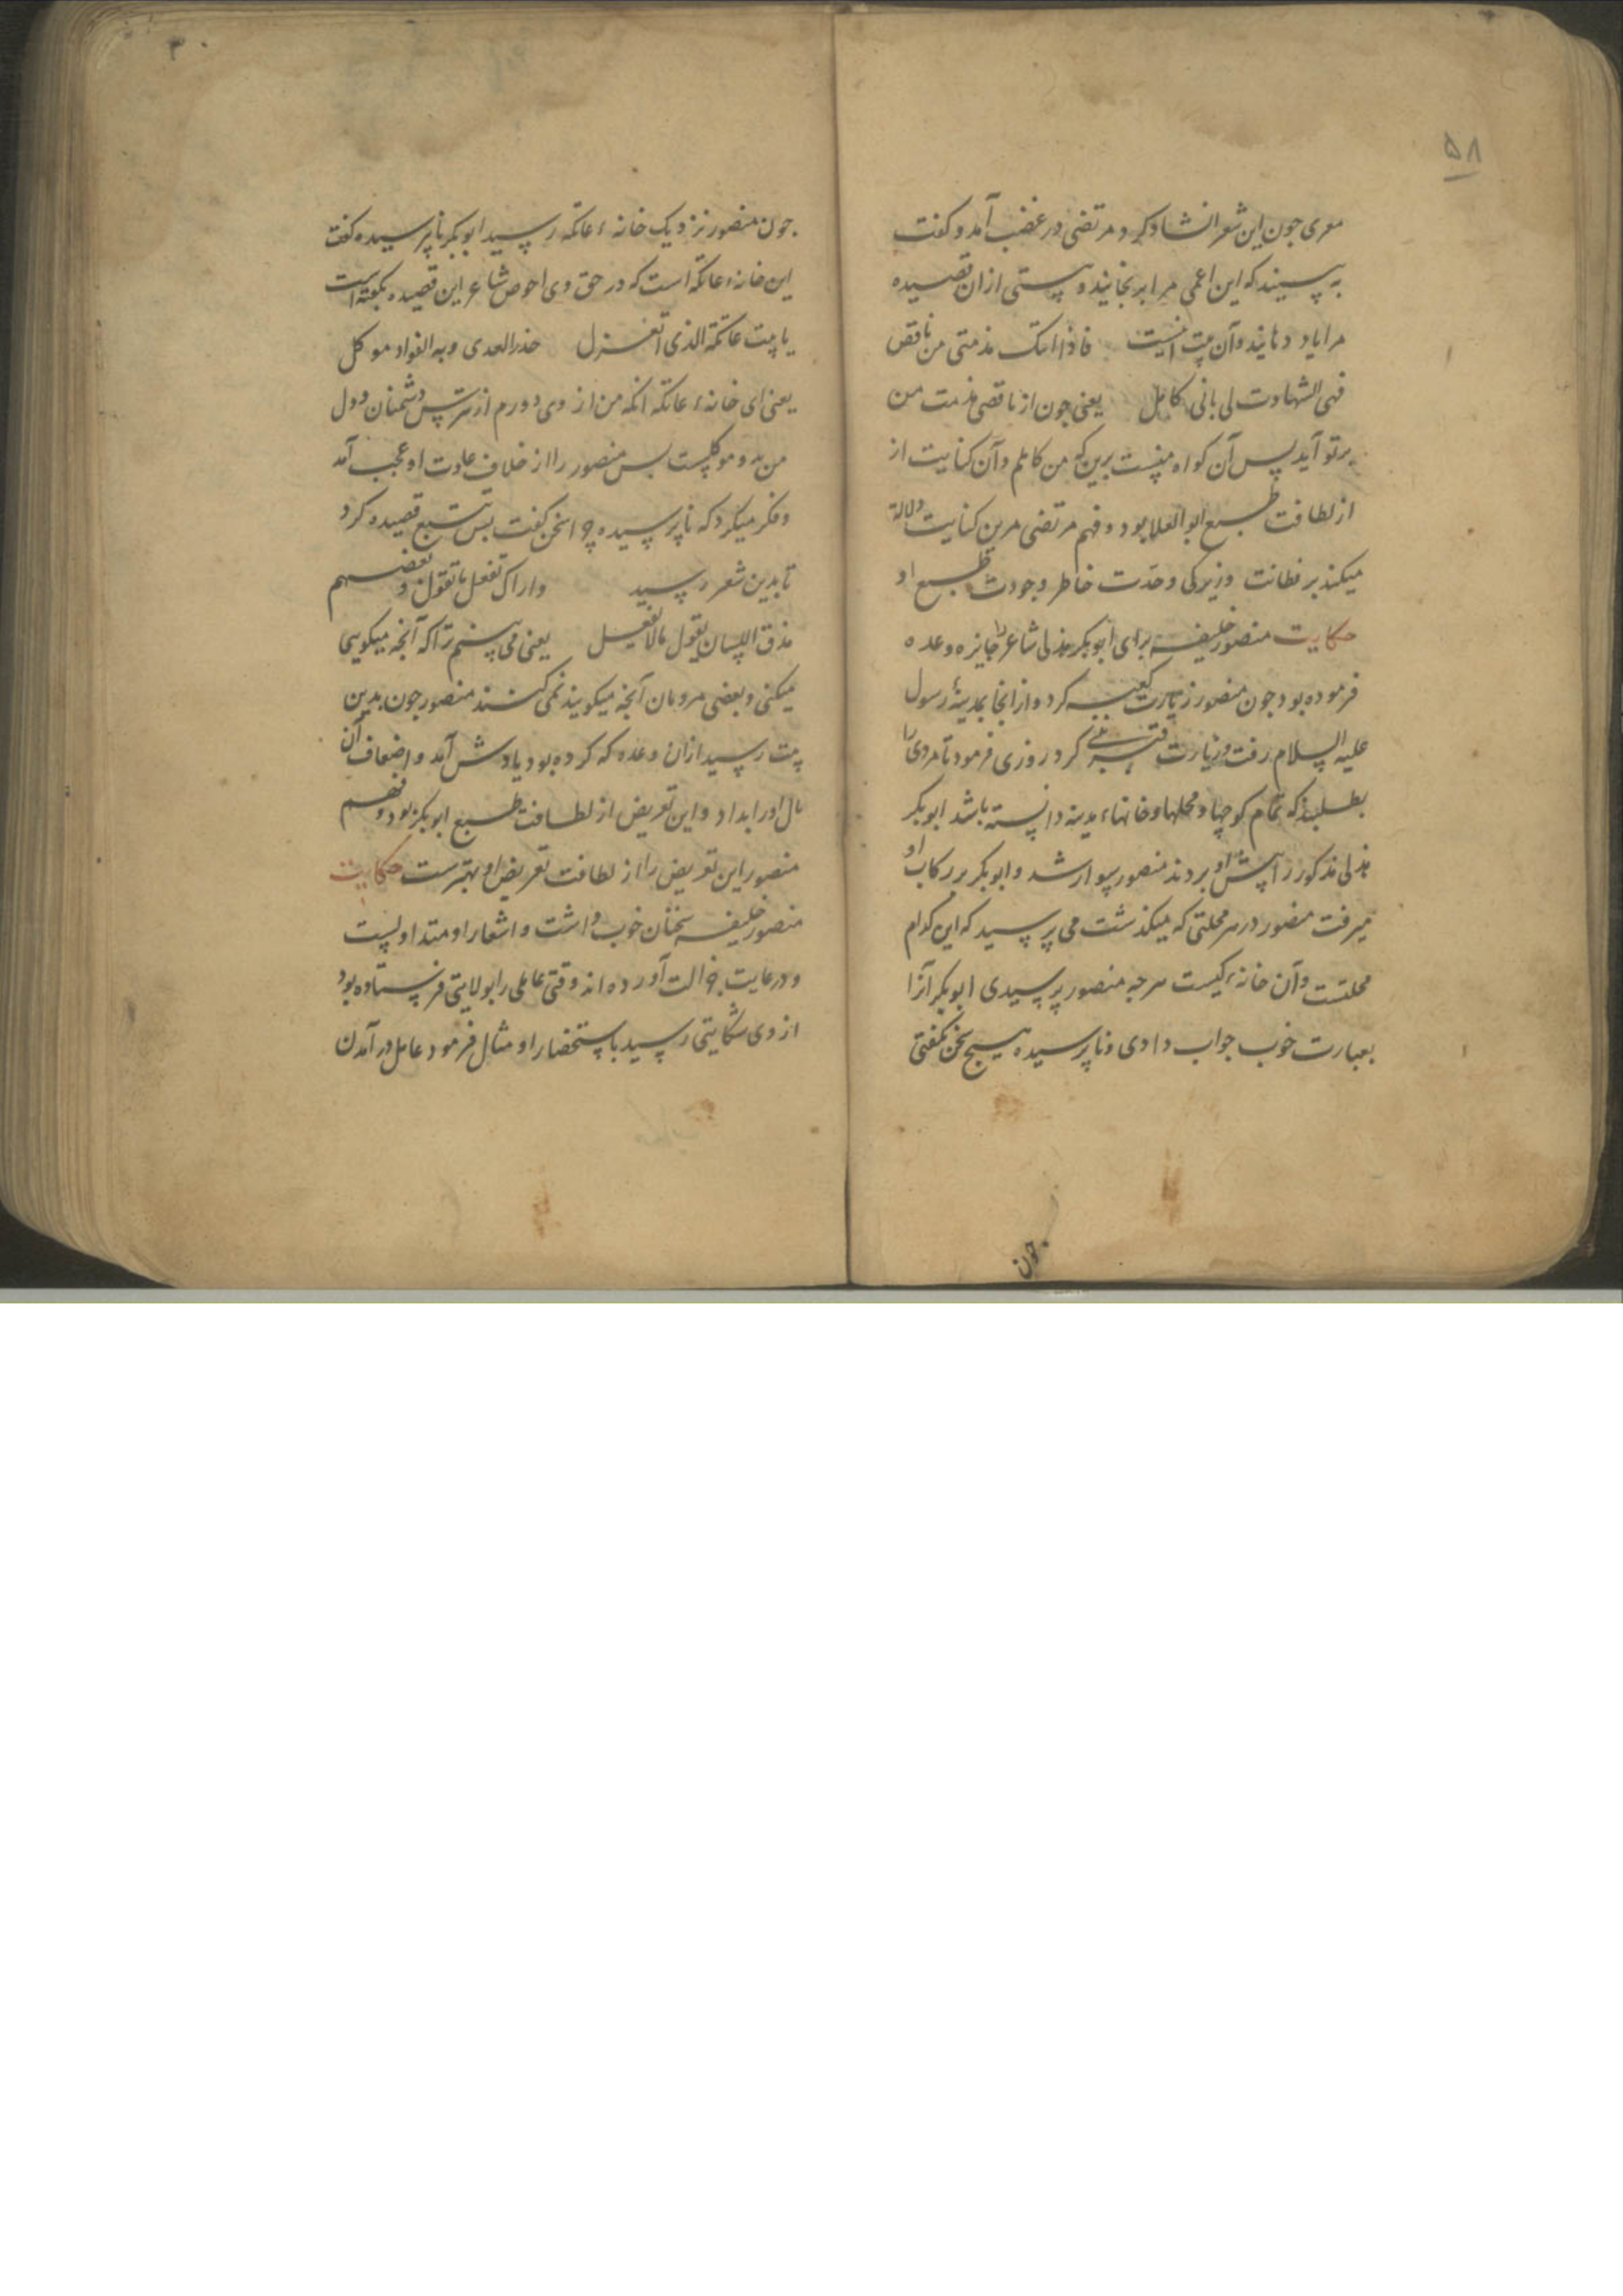 ۵۸
معری جون این شعر انشاد کرد مرتضی در غضب آمد و کفت
به بینید که این اعمی مرا برنجانید و بیتی ازان قصیده
مرا یاد دهانید و آن بیت اینست فاذا اتتک مذمتی من ناقص
فهی الشهادت لی بانی کامل یعنی جون از ناقصی مذمت من
برتو آید پس آن کواه منست برین که من کاملم و آن کنایت از
از لطافت طبع ابوالعلا بود و فهم مرتضی مرین کنایت دلالة
میکند بر فطانت و زیرکی و حدّت خاطر و جودت طبع او
حکایت منصور خلیفه برای ابوبکر هذلی شاعر را جایزه وعده
فرموده بود جون منصور زیارت کعبه کرد و از انجا بمدینهٔ رسول
علیه السلام رفت و زیارت قبر نبی کرد روزی فرمود تا مردی را
بطلبند که تمام کوچها و محلها و خانهاء مدینه دانسته باشد ابوبکر
هذلی مذکور را پیش او بردند منصور سوار شد و ابوبکر در رکاب او
میرفت منصور در هر محلتی که میکذشت می پرسید که این کدام
محلتست و آن خانهٔ کیست هرجه منصور پرسیدی ابوبکر آنرا
بعبارت خوب جواب دادی و ناپرسیده هیچ سخن نکفتی
جون
۳۰
جون منصور نزدیک خانهٔ عاتکه رسید ابوبکر ناپرسیده کفت
این خانهٔ عاتکه است که در حق وی احوص شاعر این قصیده بکفته است
یا بیت عاتکة الذی اتغزل حذر العدی و به الفواد موکل
یعنی ای خانهٔ عاتکه انکه من از وی دورم از ترس دشمنان و دل
من بدو موکلست پس منصور را از خلاف عادت او عجب آمد
و فکر میکرد که ناپرسیده چرا سخن کفت پس تتبع قصیده کرد
تا بدین شعر رسید واراک تفعل ما تقول و بعضهم
مذق اللسان یقول مالا یفعل یعنی می بینم ترا که آنجه میکویی
میکنی و بعضی مردمان آنجه میکویند نمی کنند منصور جون بدین
بیت رسید ازان وعده که کرده بود یادش آمد و اضعاف آن
مال اورا بداد و این تعریض از لطافت طبع ابوبکر بود و فهم
منصور این تعریض را از لطافت تعریض او بهترست حکایت
منصور خلیفه سخنان خوب داشت و اشعار او متداولست
و در عایت جزالت آورده اند وقتی عاملی را بولایتی فرستاده بود
از وی شکایتی رسید باستحضار او مثال فرمود عامل در آمدن